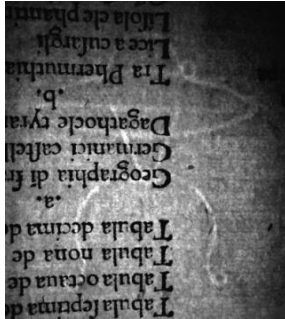 Tabula ſeptima de
Tabula octaua de
Tabula nona de
Tabula decima de
.a.
Geographia di fr
Germanici caſtell
Dagathocle tyran
.b.
Tra Phermuthia
Lice a cuſargli
Liſola ele phantin